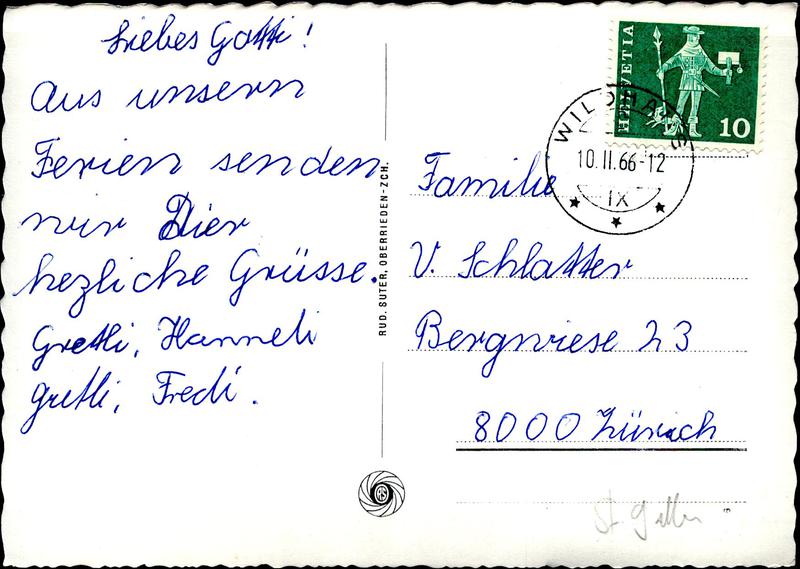 Liebes Gotti!
Aus unsern
Ferien senden
wir Dier
hezliche Grüsse.
Gretli, Hanneli
gritli, Fredi.
RUD. SUTER, OBERRIEDEN-ZCH.
HELVETIA
10
WILDHAUS
10.II.66-12
IX
Familie
V. Schlatter
Bergwiese 23
8000 Zürich